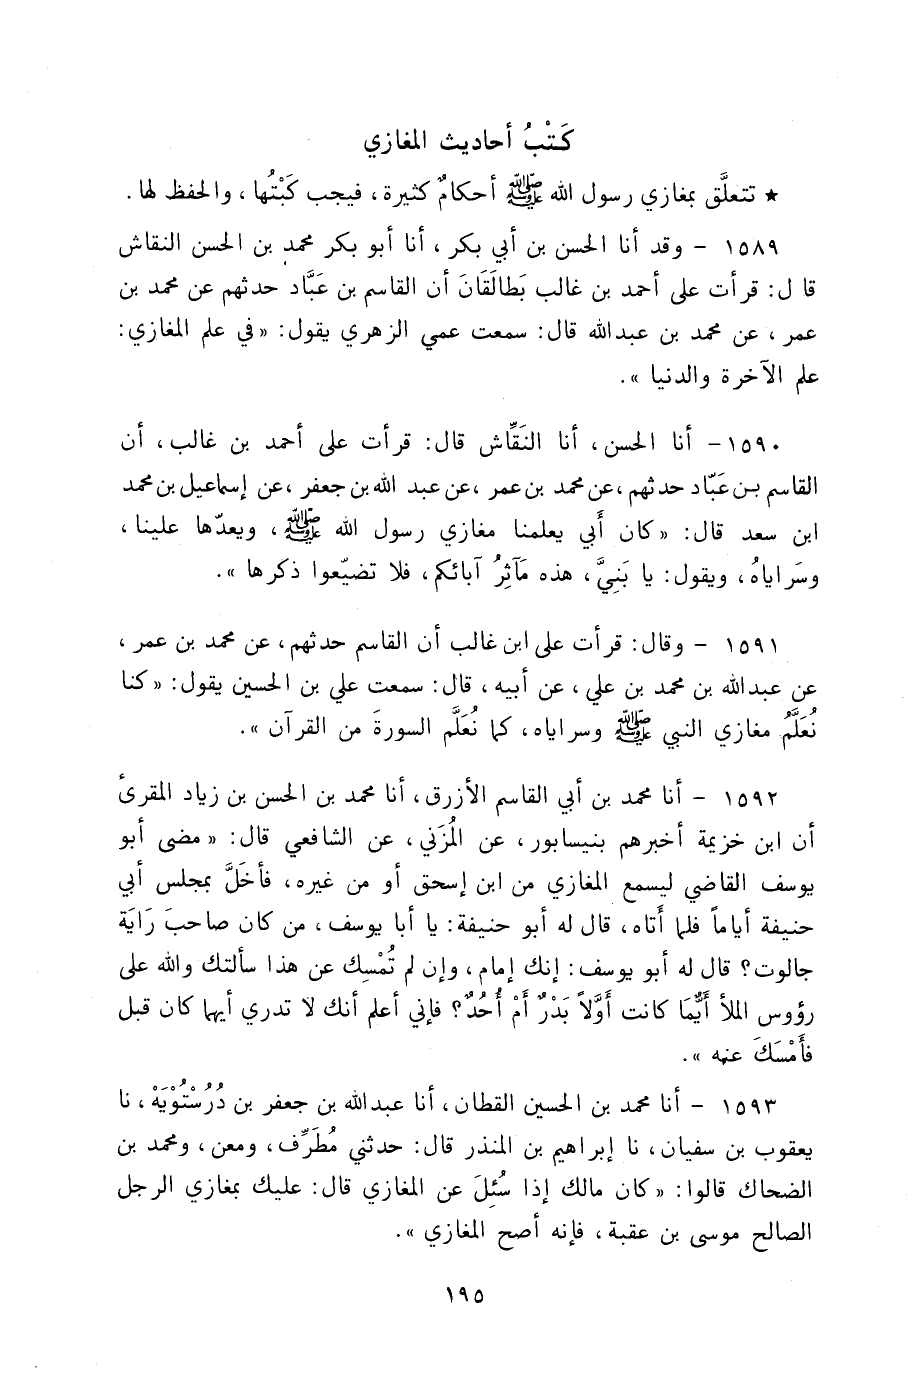 كَتْبُ أحاديث المغازي
★ تتعلَّق بمغازي رسول الله ﷺ أحكامٌ كثيرة، فيجب كَتْبُها، والحفظ لها.
١٥٨٩ – وقد أنا الحسن بن أبي بكر، أنا أبو بكر محمد بن الحسن النقاش
قا ل: قرأت على أحمد بن غالب بَطالَقَانَ أن القاسم بن عَبَّاد حدثهم عن محمد بن
عمر، عن محمد بن عبدالله قال: سمعت عمي الزهري يقول: «في علم المغازي:
علم الآخرة والدنيا».
١٥٩٠– أنا الحسن، أنا النَقَّاش قال: قرأت على أحمد بن غالب، أن
القاسم بن عَبّاد حدثهم، عن محمد بن عمر، عن عبد الله بن جعفر، عن إسماعيل بن محمد
ابن سعد قال: «كان أَبي يعلمنا مغازي رسول الله ﷺ، ويعدّها علينا،
وسَراياهُ، ويقول: يا بَنِيَّ، هذه مَآثِرُ آبائكم، فلا تضيّعوا ذكرها».
١٥٩١ – وقال: قرأت على ابن غالب أن القاسم حدثهم، عن محمد بن عمر،
عن عبدالله بن محمد بن علي، عن أبيه، قال: سمعت علي بن الحسين يقول: «كنا
نُعَلَّمُ مغازي النبي ﷺ وسراياه، كما نُعَلَّم السورةَ من القرآن».
١٥٩٢ – أنا محمد بن أبي القاسم الأزرق، أنا محمد بن الحسن بن زياد المقرئ
أن ابن خزيمة أخبرهم بنيسابور، عن المُزَني، عن الشافعي قال: «مضى أبو
يوسف القاضي ليسمع المغازي من ابن إسحق أو من غيره، فأخَلَّ بمجلس أبي
حنيفة أياماً فلما أَتاه، قال له أبو حنيفة: يا أبا يوسف، من كان صاحبَ رَايَة
جالوت؟ قال له أبو يوسف: إنك إمام، وإن لم تُمْسِك عن هذا سألتك والله على
رؤوس الملأ أَيُّمَا كانت أَوَّلاً بَدْرٌ أَمْ أُحُدٌ؟ فإني أعلم أنك لا تدري أيهما كان قبل
فأَمْسَكَ عنه».
١٥٩٣ – أنا محمد بن الحسين القطان، أنا عبدالله بن جعفر بن دُرُسْتُوَيْهْ، نا
يعقوب بن سفيان، نا إبراهيم بن المنذر قال: حدثني مُطَرِّف، ومعن، ومحمد بن
الضحاك قالوا: «كان مالك إذا سُئِلَ عن المغازي قال: عليك بمغازي الرجل
الصالح موسى بن عقبة، فإنه أصح المغازي».
١٩٥